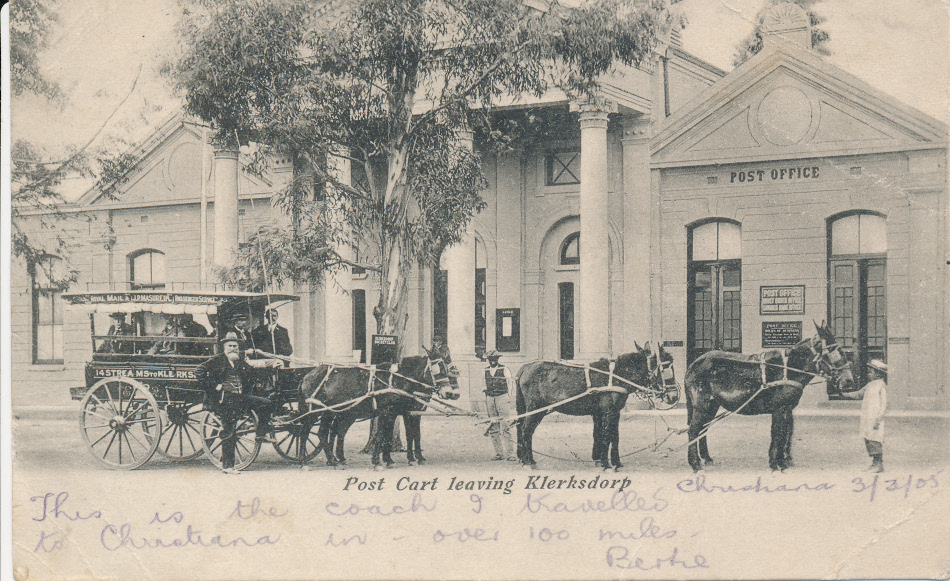 POST OFFICE
ROYAL MAIL & J.P. MASUREIK PASSENGER SERVICE
POST OFFICE
POST OFFICE
14 STREAMS TO KLERKS
Post Cart leaving Klerksdorp
Christiana 3/3/05
This is the coach I travelled
to Christiana in - over 100 miles -
Bertie